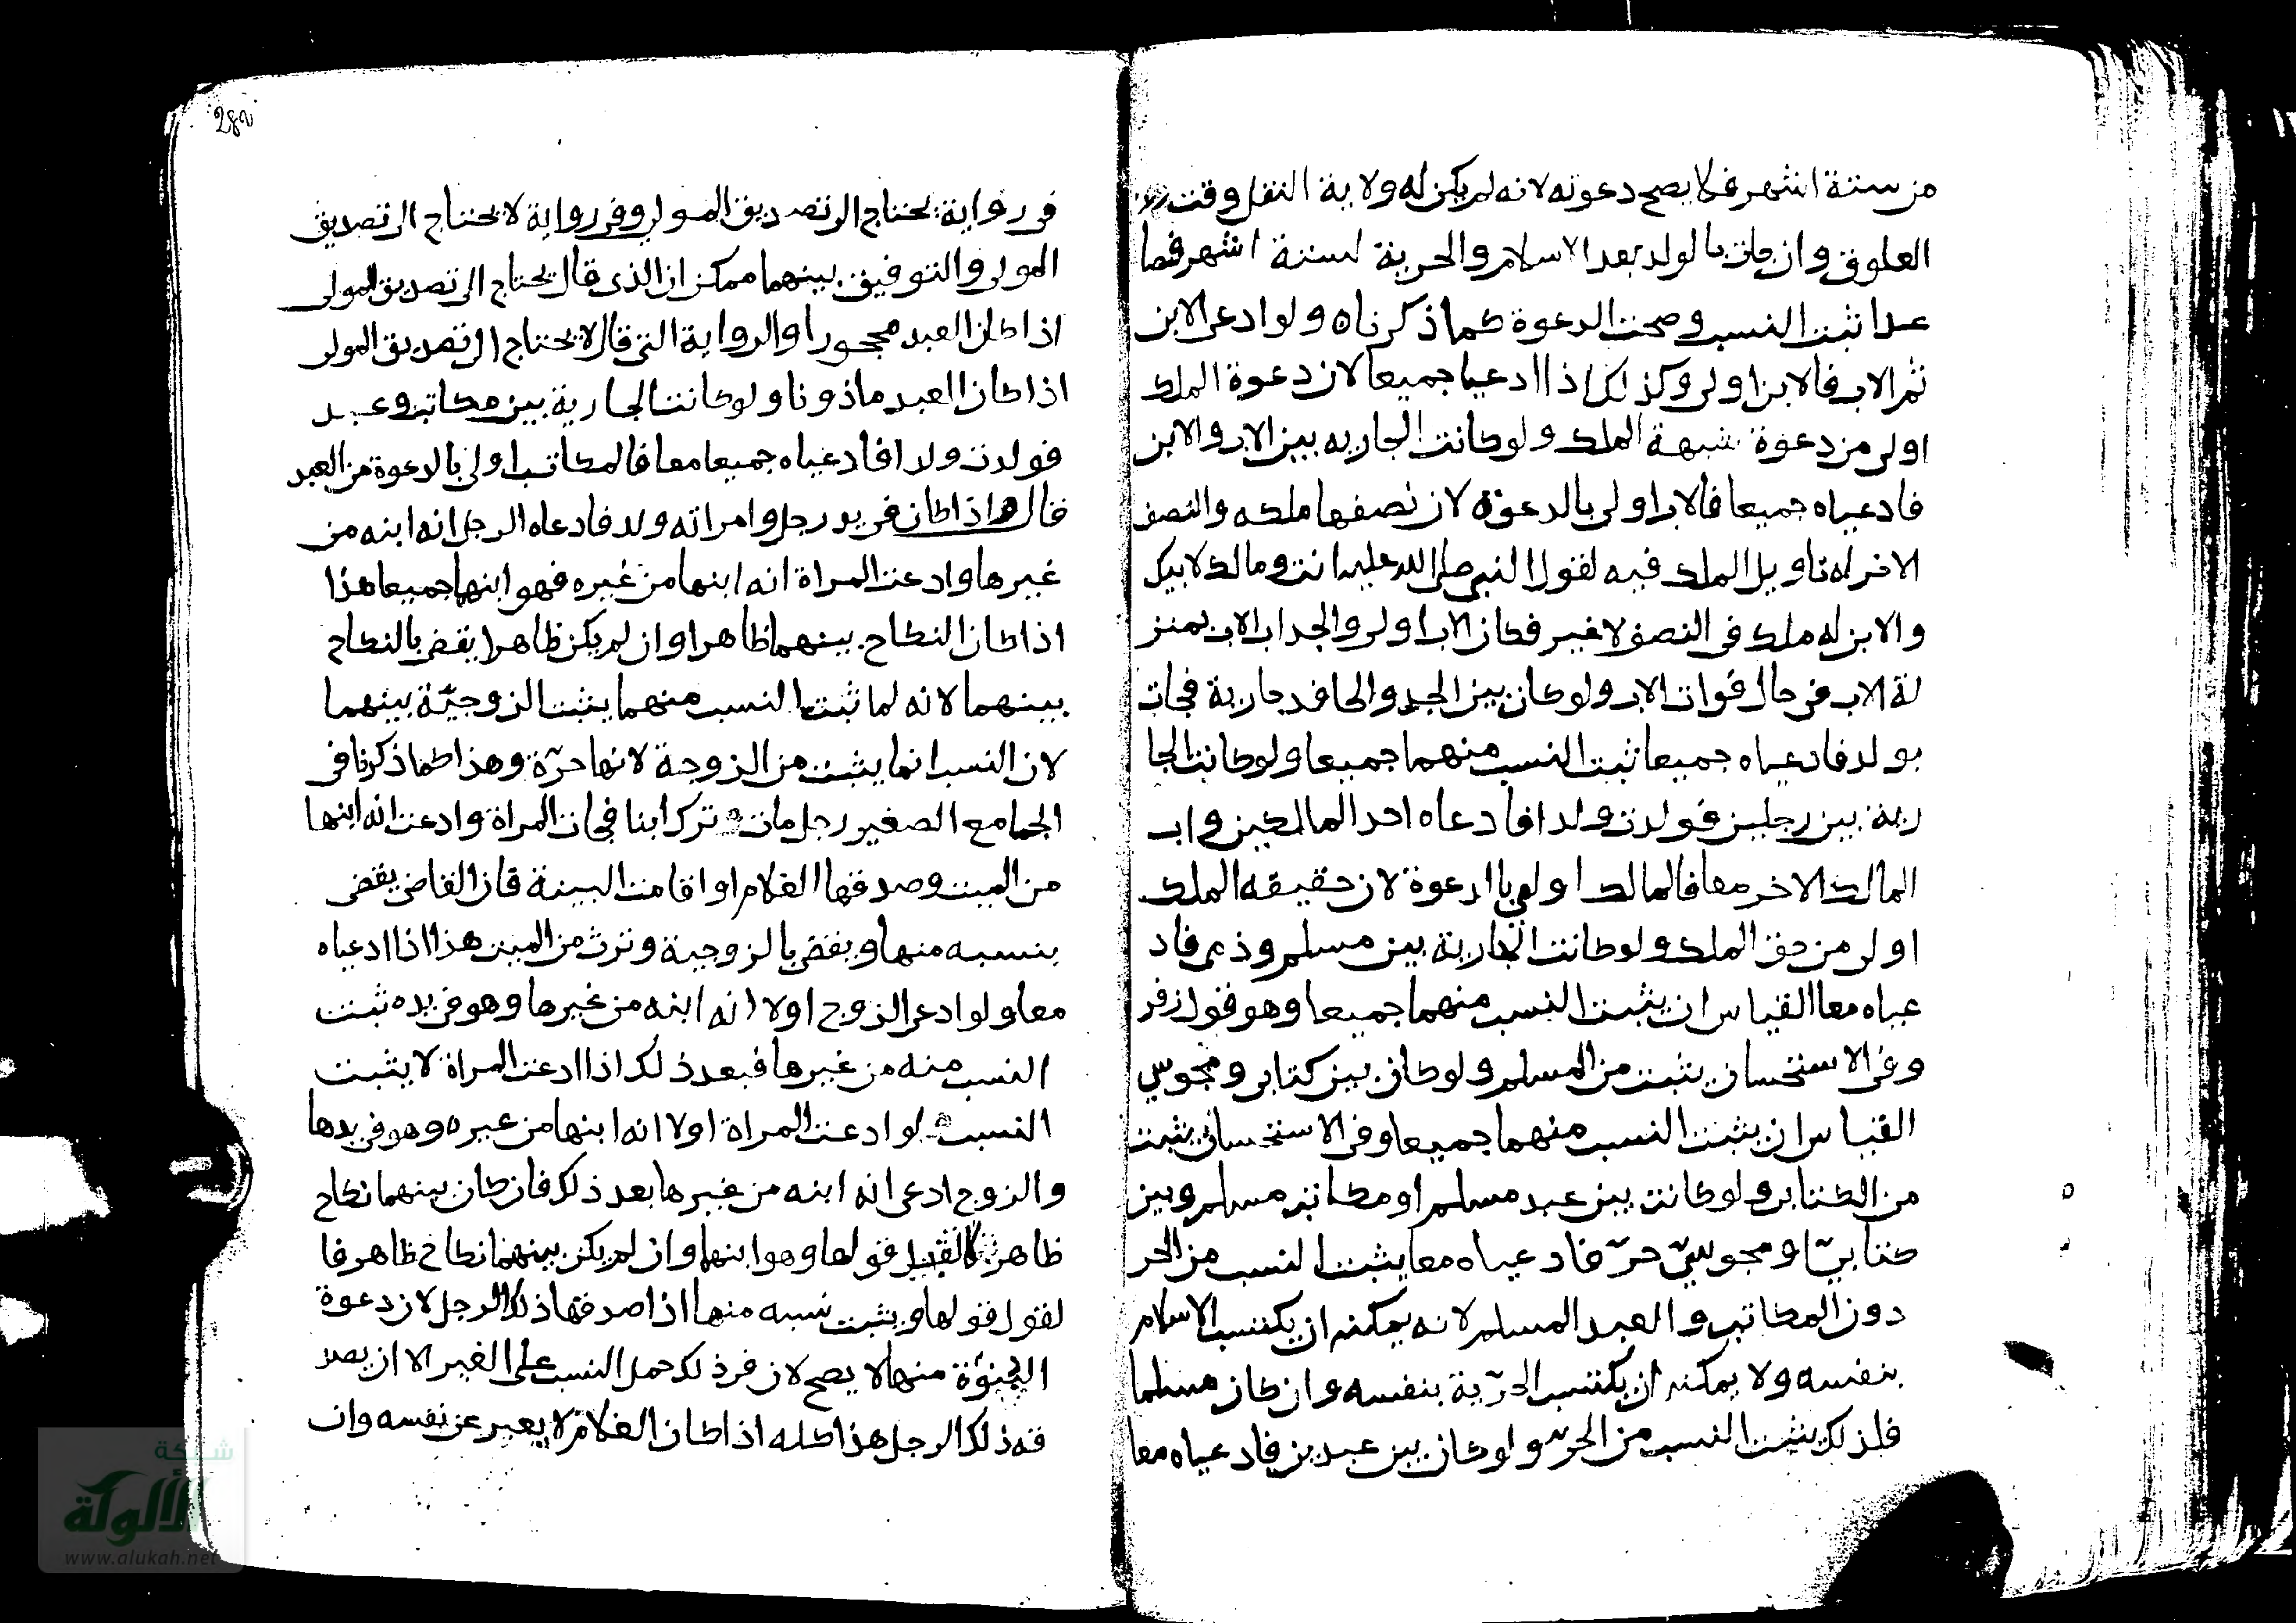 من ستة اشهر فلا يصح دعوته لانه لم يكن له ولاية النقل وقت
العلوق وان جات بالولد بعد الاسلام والحرية لستة اشهر فصا
عدا ثبت النسب وصحت الدعوة كما ذكرناه ولو ادعى الابن
ثم الاب فالابن اولى وكذلك اذا ادعيا جميعا لان دعوة الملك
اولى من دعوة شبهة الملك ولو كانت الجاريه بين الاب والابن
فادعياه جميعا فالاب اولى بالدعوة لان نصفها ملكه والنصف
الاخر له تاويل الملك فيه لقول النبي صلى الله عليه انت ومالك لابيك
والابن له ملك فى النصف لا غير فكان الاب اولى والجد اب الاب بمنز
لة الاب في حال فوات الاب ولو كان بين الجد والحافد جارية فجات
بولد فادعياه جميعا ثبت النسب منهما جميعا ولو كانت الجا
رية بين رجلين فولدت ولدا فادعاه احد المالكين واب
المالك الاخر معا فالمالك اولى بالدعوة لان حقيقه الملك
اولى من حق الملك ولو كانت الجارية بين مسلم وذمى فاد
عياه معا القياس ان يثبت النسب منهما جميعا وهو قول زفر
وفى الاستحسان يثبت من المسلم ولو كان بين كتابى ومجوسي
القياس ان يثبت النسب منهما جميعا وفى الاستحسان يثبت
من الكتابى ولو كانت بين عبد مسلم او مكاتب مسلم وبين
كتابيّ او مجوسيّ حرّ فادعياه معا يثبت النسب من الحر
دون المكاتب والعبد المسلم لانه يمكنه ان يكتسب الاسلام
بنفسه ولا يمكنه ان يكتسب الحرّية بنفسه وان كان مسلما
فلذلك يثبت النسب من الحر ولو كان بين عبدين فادعياه معا
282
فى رواية يحتاج الى تصديق المولى وفى رواية لا يحتاج الى تصديق
المولى والتوفيق بينهما ممكن ان الذى قال يحتاج الى تصديق المولى
اذا كان العبد محجورا والرواية التى قال لا يحتاج الى تصديق المولى
اذا كان العبد ماذونا ولو كانت الجارية بين مكاتب وعبد
فولدت ولدا فادعياه جميعا معا فالمكاتب اولى بالدعوة من العبد
قال واذا كان فى يد رجل وامراته ولد فادعاه الرجل انه ابنه من
غيرها وادعت المراة انه ابنها من غيره فهو ابنهما جميعا هذا
اذا كان النكاح بينهما ظاهرا وان لم يكن ظاهرا يقضى بالنكاح
بينهما لانه لما ثبت النسب منهما يثبت الزوجيّة بينهما
لان النسب انما يثبت من الزوجة لانها حرّة وهذا كما ذكرنا فى
الجامع الصغير رجل مات وترك ابنا فجات المراة وادعت انه ابنها
من الميت وصدقها الغلام او اقامت البينة فان القاضى يقضى
بنسبه منها ويقضى بالزوجية وترث من الميت هذا اذا ادعياه
معا ولو ادعى الزوج اولا انه ابنه من غيرها وهو فى يده ثبت
النسب منه من غيرها فبعد ذلك اذا ادعت المراة لا يثبت
النسب ولو ادعت المراة اولا انه ابنها من غيره وهو فى يدها
والزوج ادعى انه ابنه من غيرها بعد ذلك فان كان بينهما نكاح
ظاهر لا يقبل قولها وهو ابنهما وان لم يكن بينهما نكاح ظاهر فا
لقول قولها ويثبت نسبه منها اذا صدقها ذلك الرجل لان دعوة
البنوّة منها لا يصح لان فى ذلك حمل النسب على الغير الا ان يصد
قه ذلك الرجل هذا كله اذا كان الغلام لا يعبر عن نفسه وان
شبكة
الألوكة
www.alukah.net